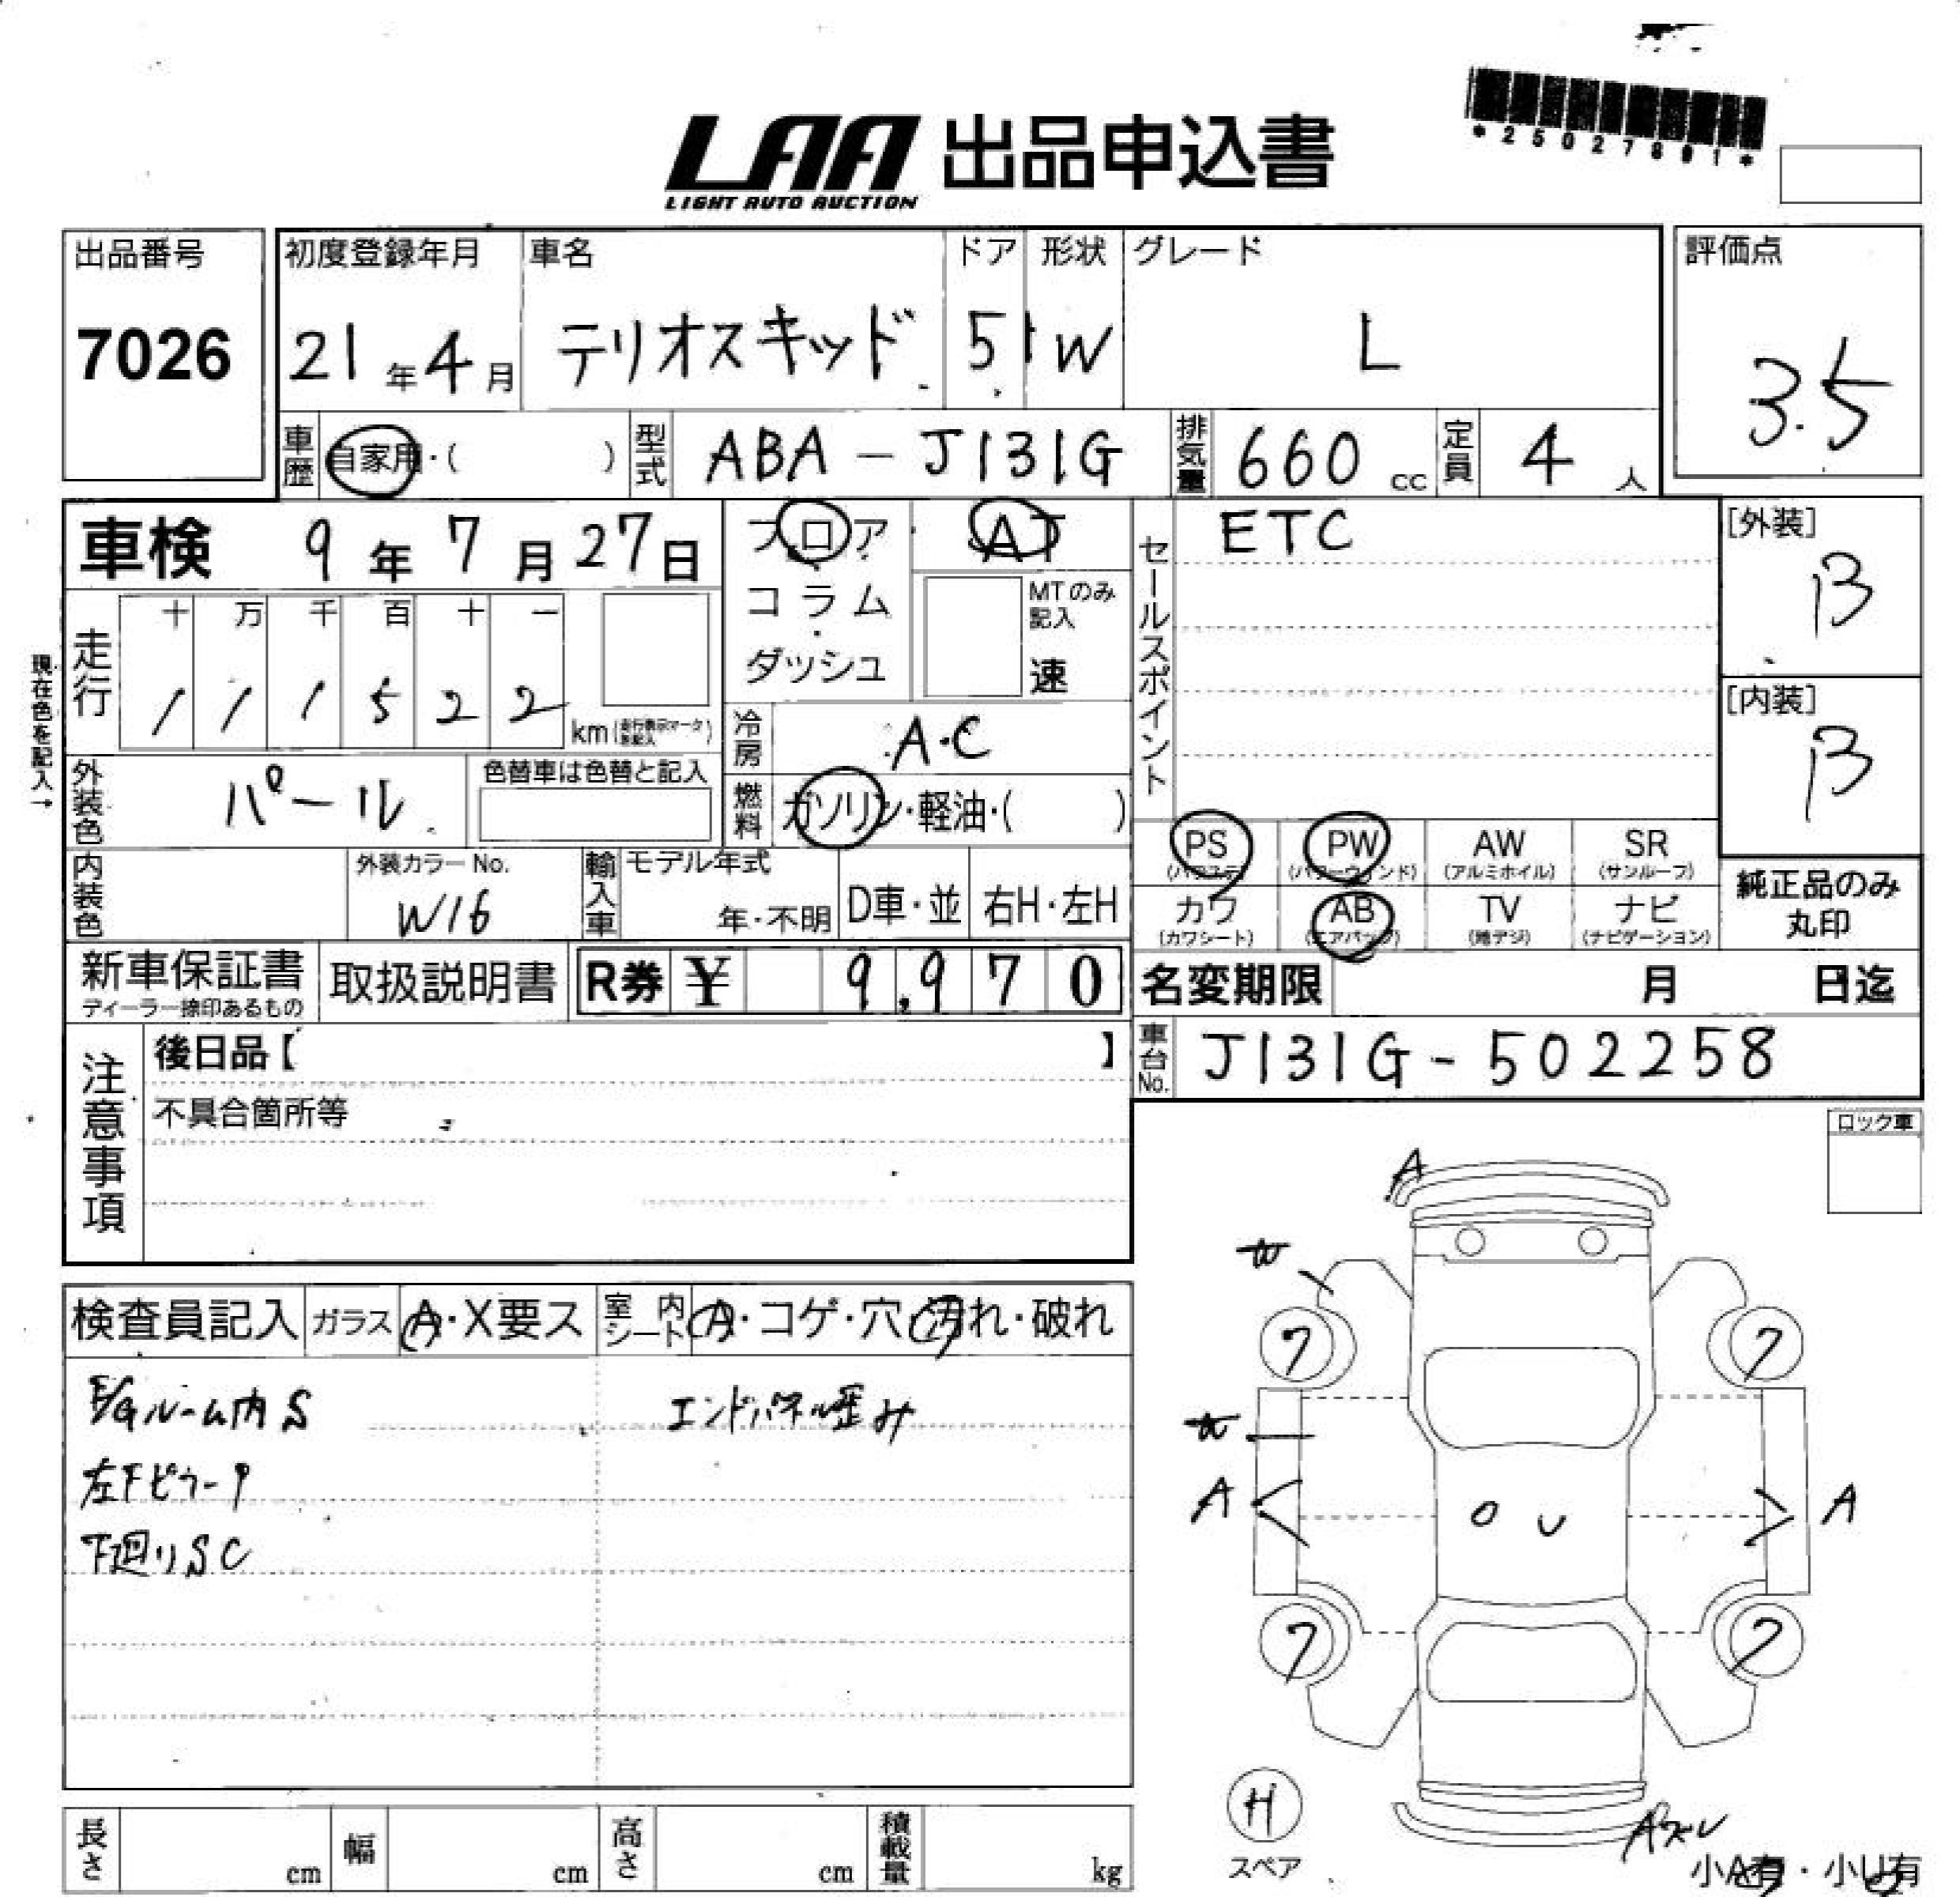 LAA 出品申込書
LIGHT AUTO AUCTION
*25027891*
出品番号
7026
初度登録年月
21年4月
車名
テリオスキッド
ドア
5
形状
W
グレード
L
評価点
3.5
車歴
自家用・( )
型式
ABA-J131G
排気量
660 cc
定員
4人
車検 9年7月27日
フロア・
コラム・
ダッシュ
AT
MTのみ記入
速
セールスポイント
ETC
[外装]
B
[内装]
B
走行
十 万 千 百 十 一
1 1 1 5 2 2
km(走行表示マークを記入)
現在色を記入→
冷房
A・C
燃料
ガソリン・軽油・( )
外装色
パール
色替車は色替と記入
内装色
外装カラーNo.
W16
輸入車
モデル年式
年・不明
D車・並
右H・左H
PS (パワステ)
PW (パワーウィンド)
AW (アルミホイル)
SR (サンルーフ)
カワ (カワシート)
AB (エアバッグ)
TV (地デジ)
ナビ (ナビゲーション)
純正品のみ
丸印
新車保証書
ディーラー捺印あるもの
取扱説明書
R券 ¥ 9,970
名変期限 月 日迄
車台No.
J131G-502258
注意事項
後日品【 】
不具合箇所等
ロック車
検査員記入
ガラス
A・X要ス
室内シート
A・コゲ・穴・汚れ・破れ
E/Gルーム内S
エンドパネル歪み
左FピラーP
下廻りSC
A
W
フ
フ
W
A
A
U
フ
フ
H
スペア
小A有・小U有
長さ cm
幅 cm
高さ cm
積載量 kg